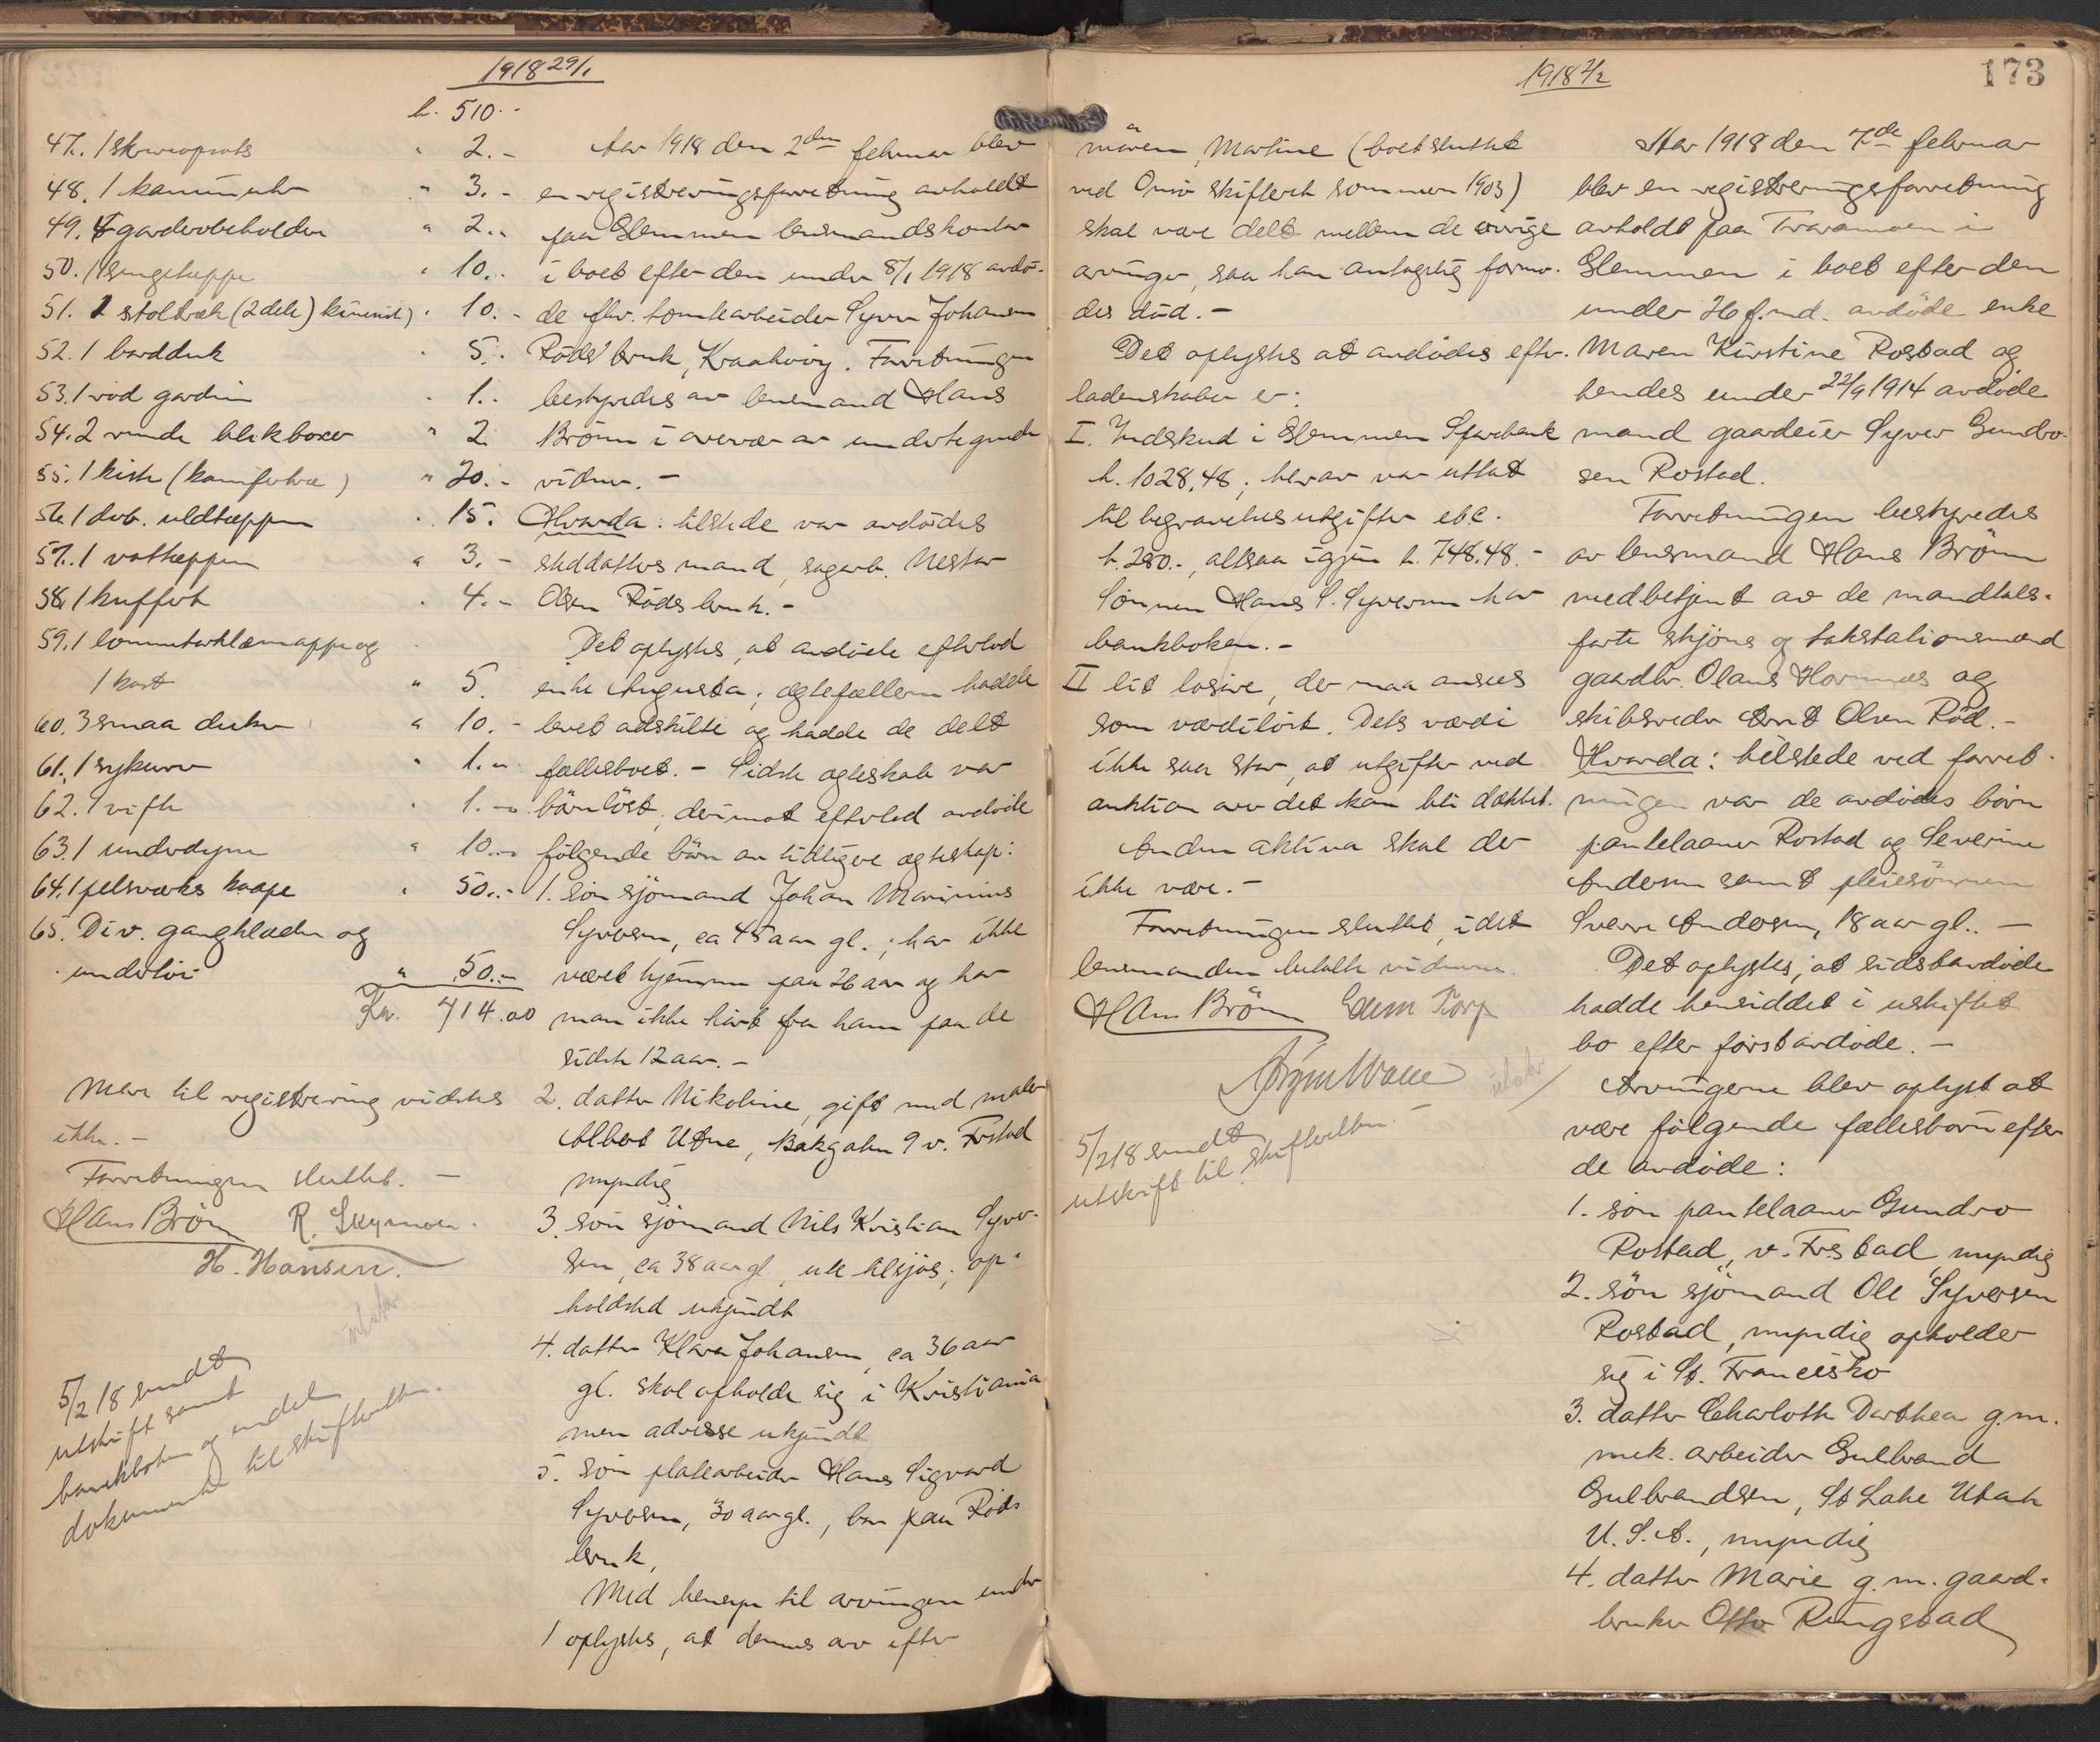 1918 29/1
k. 510.-
47. 1 skrivoprats " 2.-
48. 1 kaminuhr " 3.-
49. 4 garderobeholdere " 2..
50. 1 sengeteppe " 10..
51. 2 stoltræk (2 dele) kinesisk) " 10.-
52. 1 bordduk " 5..
53. 1 rød gardin 1..
54. 2 runde blikboxer " 2
55. 1 kiste (kamfertræ) " 20.-
56. 1 dob. uldteppe " 15.
57. 1 vatteppe " 3.-
58. 1 kuffert " 4.-
59. 1 lommetørklæmappe og
1 kost " 5.
60. 3 smaa duker " 10.-
61. 1 sykurv " 1.-
62. 1 vifte " 1.-
63. 1 underdyne " 10.-
64. 1 pelsværks kaape " 50.-
65. Div. gangklæder og
undertøi " 50.-
Kr. 714.00
Mere til registrering vistes
ikke.-
Forretningen sluttet. -
Hans Brönn R. Skymoen.
H. Hansen.
5/2 18 sendt
utskrift samt
bankboken og endel
dokumenter til skifteretten.
Aar 1918 den 2den februar blev
en registreringsforretning avholdt
paa Glemmen lensmandskontor
i boet efter den under 8/1 1918 avdö-
de fhv. tomtearbeider Syver Johansen
Röds bruk, Kraakeröy. Forretningen
bestyredes av lensmand Hans
Brönn i overvær av undertegnede
vidner. -
Hvorda: tilstede var avdödes
steddatters mand, sagarb. Nestor
Olsen Röds bruk. -
Det oplystes, at avdöde efterlod
enke Augusta; ægtefællerne hadde
levet adskilte og hadde de delt
fællesboet. - Sidste ægteskab var
barnlöst, derimot efterlod avdöde
fölgende börn av tidligere ægteskap:
1. sön sjömand Johan Marinius
Syversen, ca 45 aar gl.; har ikke
været hjemme paa 26 aar og har
man ikke hört fra ham paa de
sidste 12 aar. -
2. datter Nikoline, gift med maler
Albert Utne, Bakgaten 9 v. Frstad
myndig
3. sön sjömand Nils Kristian Syver-
sen, ca 38 aar gl, ute tilsjös; op-
holdsted ukjendt
4. datter Klara Johansen, ca 36 aar
gl. skal opholde sig i Kristiania
men adresse ukjendt
5. sön platearbeider Hans Sigvard
Syversen, 30 aar gl., bor paa Röds
bruk,
Med hensyn til arvingen under
1 oplystes, at dennes arv efter
1918 7/2
173
moren, Martine (boet sluttet
ved Onsö skifteret sommeren 1903)
skal være delt mellem de övrige
arvinger, saa han antagelig formo-
des död. -
Det oplystes at avdödes efter-
ladenskaber er:
I. Indskud i Glemmen Sparebank
k. 1028,48; herav var uttat
til begravelsesutgifter etc.
k. 280.-, altsaa igjen k. 748.48.-
Sönnen Hans S. Syversen har
bankboken. -
II litt lösöre, der maa ansees
som værdilöst. Dets værdi
ikke saa stor, at utgifter ved
auktion over det kan bli dækket.
Anden aktiva skal der
ikke være. -
Forretningen sluttet, idet
lensmanden betalte vidnerne.
Hans Brönn Edem Torp
5/2 18 sendt
utskrift til skifteretten.
Aar 1918 den 7de februar
blev en registreringsforretning
avholdt paa Traramoen i
Glemmen i boet efter den
under 26 f.md. avdöde enke
Maren Kirstine Rostad og
hendes under 22/9 1914 avdöde
mand gaardeier Syver Gundro-
sen Rostad.
Forretningen bestyredes
av lensmand Hans Brönn
medbetjent av de mandtals-
förte skjöns og takstationsmænd
gaardbr. Olaus Hornnes og
skibsreder Arnt Olsen Röd. -
Hvorda: tilstede ved forret-
ningen var de avdödes börn
pantelaaner Rostad og Severine
Andersen samt pleiesönnen
Sverre Andersen, 18 aar gl.. -
Det oplystes, at sidstavdöde
hadde hensiddet i uskiftet
bo efter förstavdöde. -
Arvingerne blev oplyst at
være fölgende fællesbörn efter
de avdöde:
1. sön pantelaaner Gundro
Rostad, v. Frstad, myndig
2. sön sjömand Ole Syversen
Rostad, myndig opholder
sig i St. Francisko
3. datter Charlotte Dorthea g.m.
mek. arbeider Gulbrand
Gulbrandsen, St Lake Utah
U.S.A., myndig
4. datter Marie g.m. gaard-
bruker Otto Ringstad